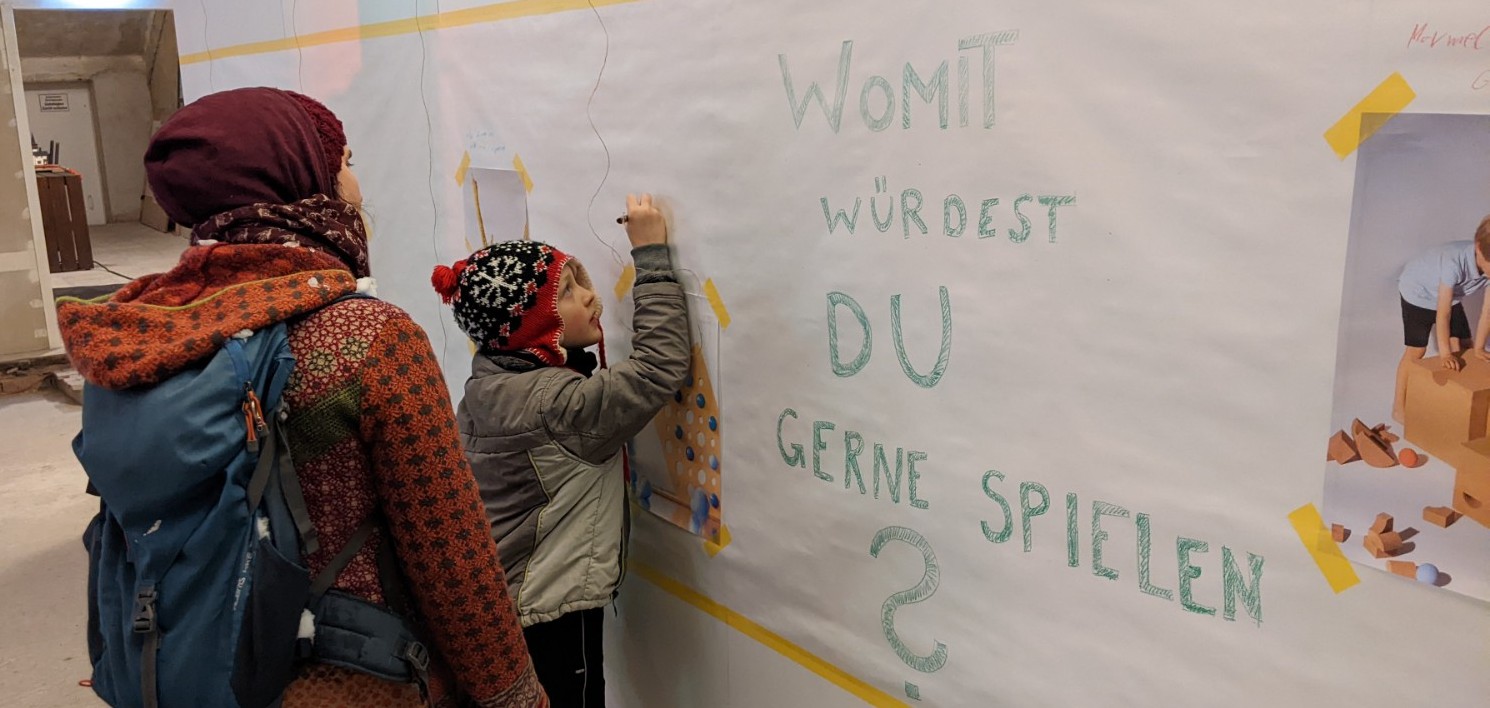 WOMIT
WÜRDEST
DU
GERNE SPIELEN
?